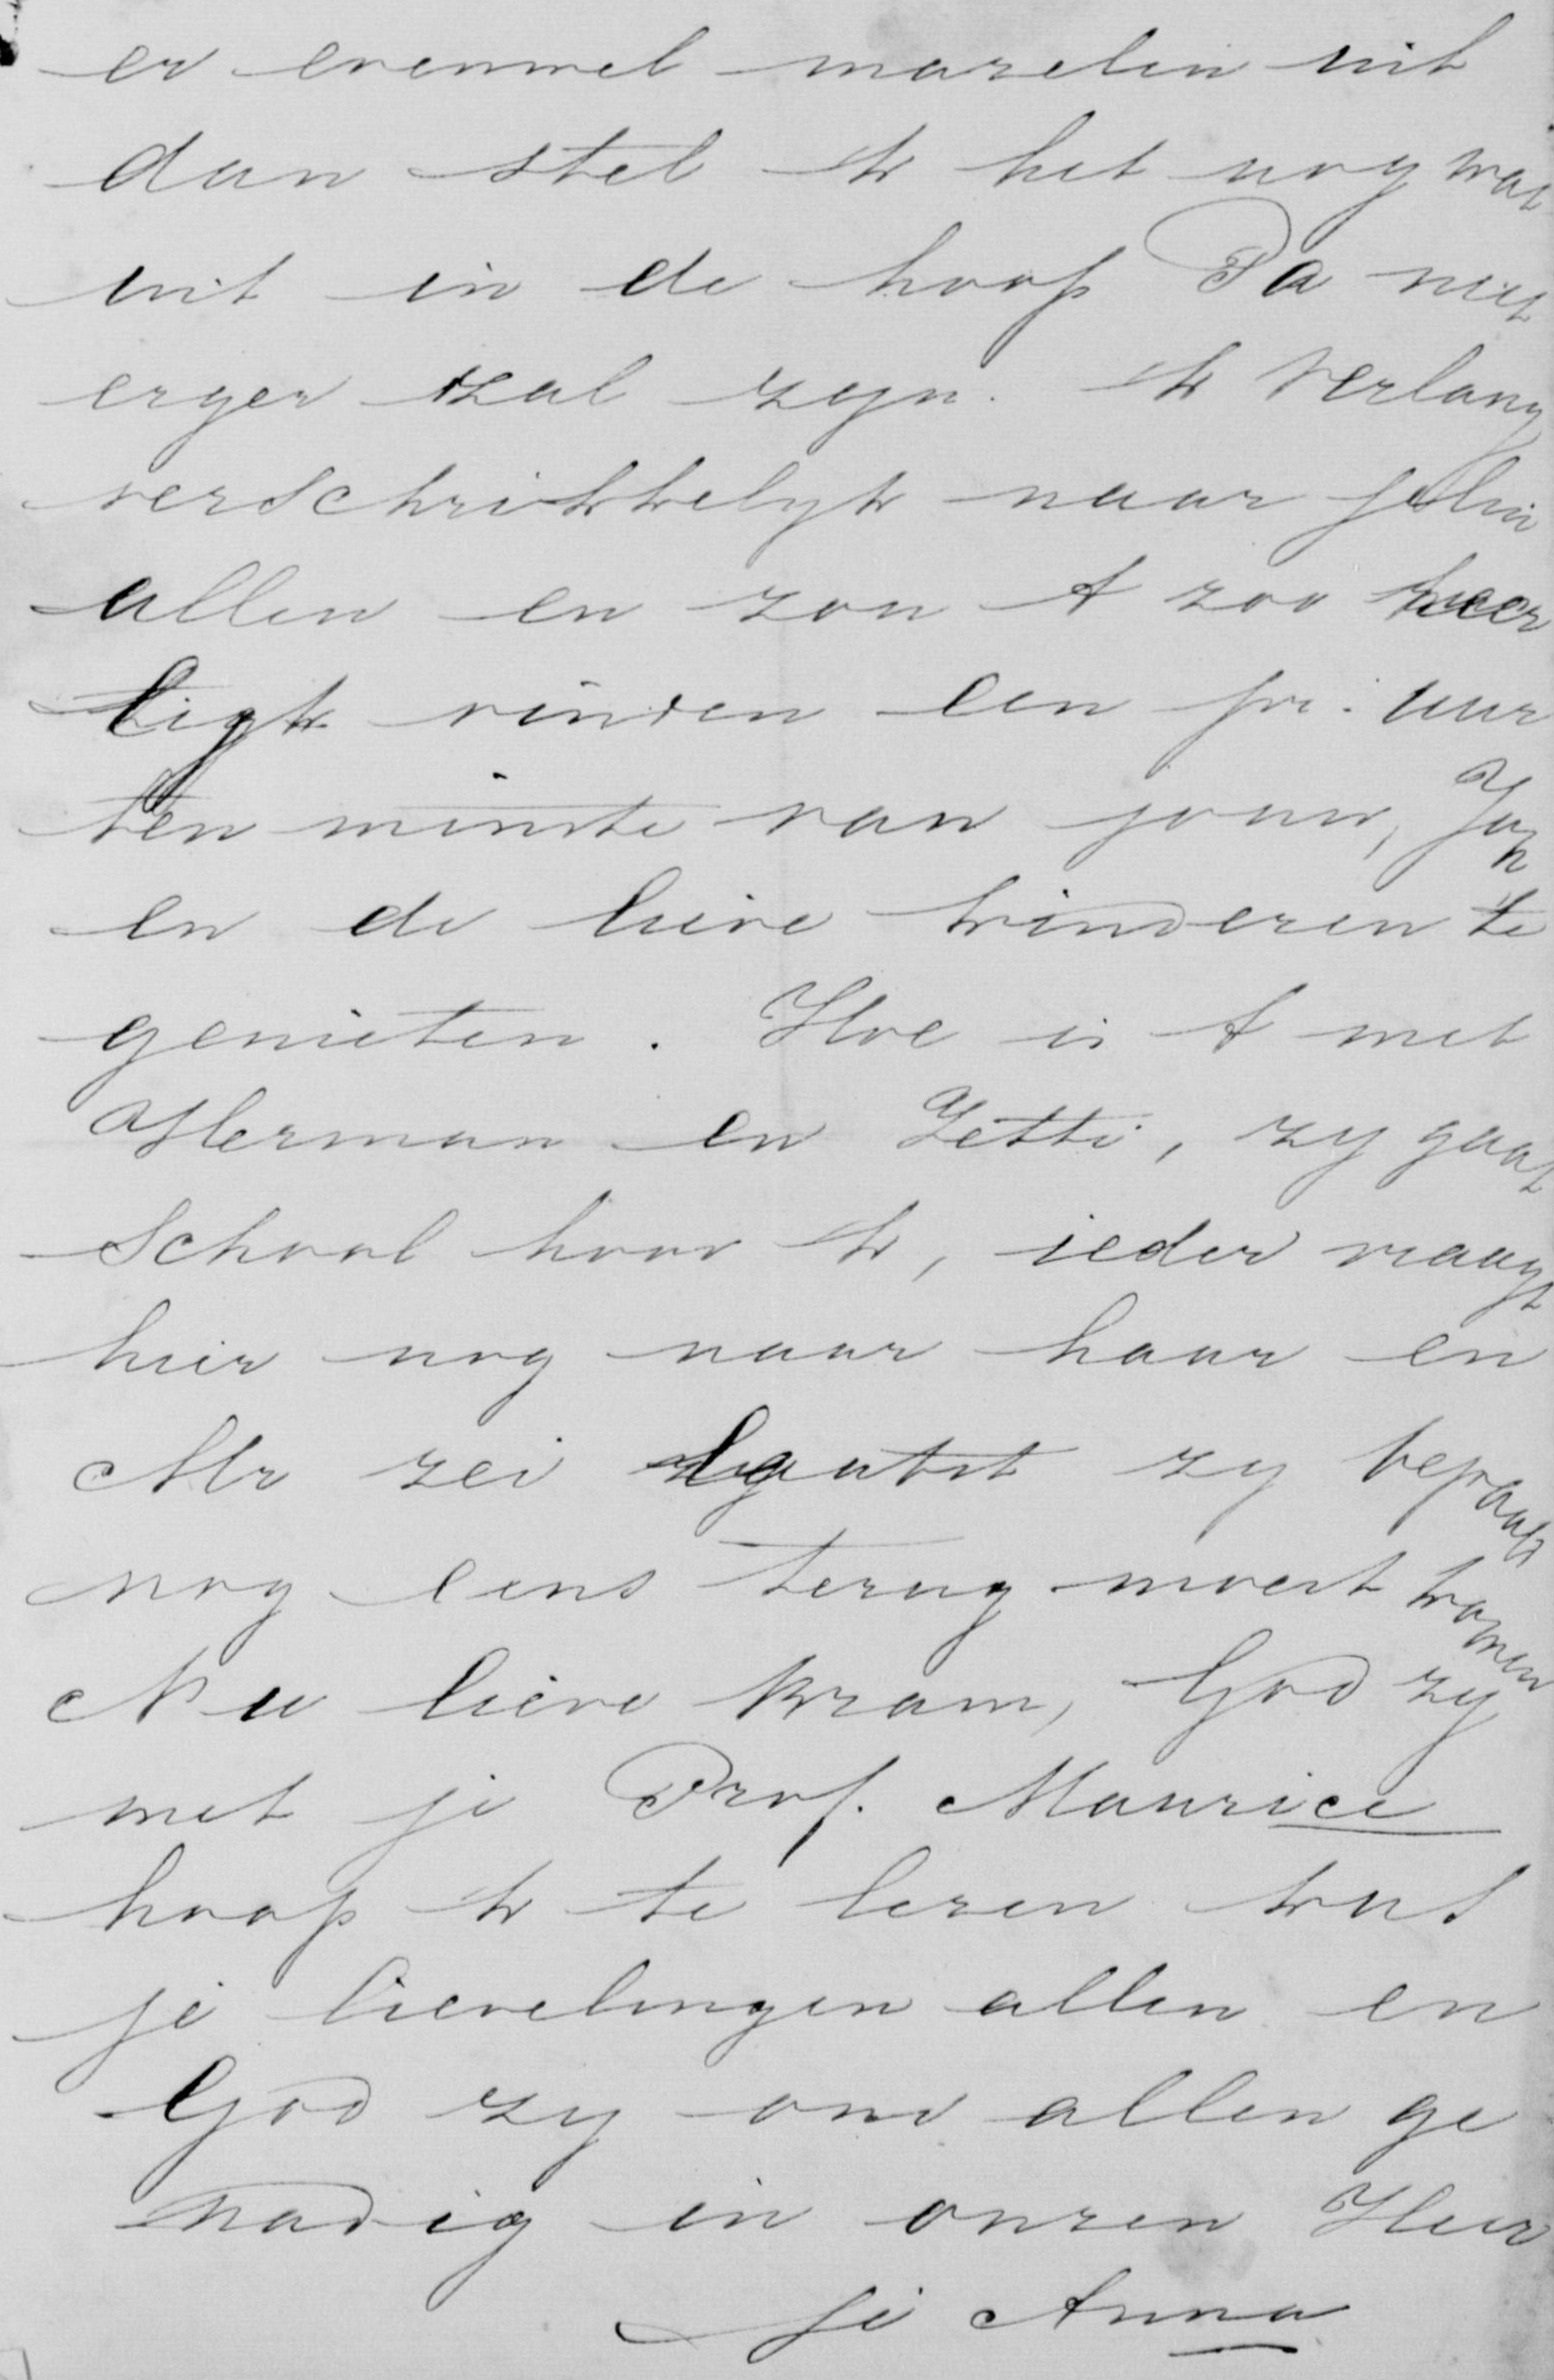 er evenwel mazelen uit
dan stel ik het nog wat
uit in de hoop Pa niet
erger zal zyn. ik verlang
verschrikkelyk naar jelui
allen en zou 't zoo heer
ligk vinden een pr. uur
ten minste van jouw, Jan
en de lieve kinderen te
genieten. Hoe is 't met
Herman en Jetti, zy gaat
School hoor ik, ieder vraagt
hier nog naar haar en
Mr zei dat zy bepaald
nog eens terug moest komen
Nu lieve Bram, God zy
met je Prof. Maurice
hoop ik te lezen kus
je lievelingen allen en
God zy ons allen ge
nadig in onzen Heer
je Anna